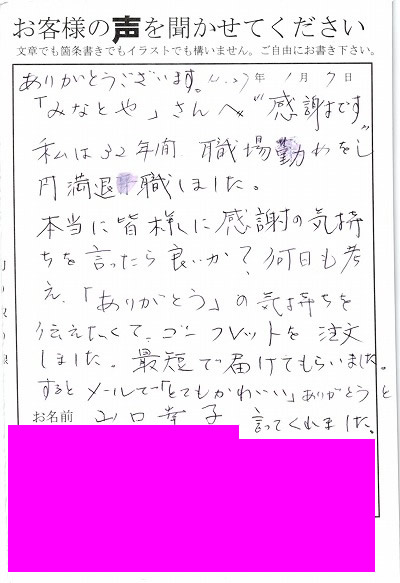 お客様の声を聞かせてください
文章でも箇条書きでもイラストでも構いません。ご自由にお書き下さい。
ありがとうございます。 H.27年 1月 7日
「みなとや」さんへ "感謝です"
私は32年間、職場勤めをし
円満退職しました。
本当に皆様に感謝の気持
ちを言ったら良いか?何日も考
え、「ありがとう」の気持ちを
伝えたくて、ゴーフレットを注文
しました。最短で届けてもらいました。
するとメールで「とてもかわいい」ありがとうと
お名前 山口幸子 言ってくれました。